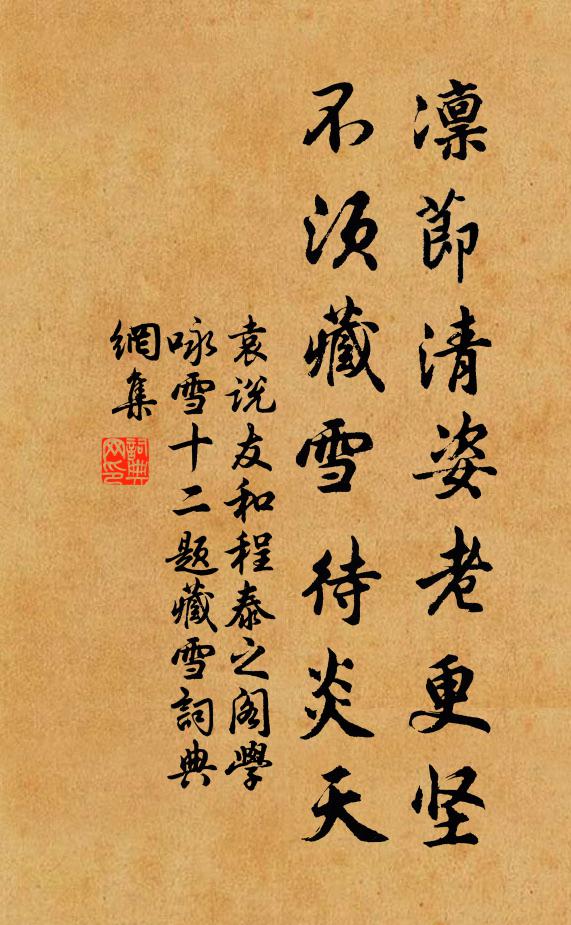 凛節清姿老更坚
不须藏雪待炎天
袁说友和程泰之阁學
咏雪十二题藏雪詞典
網集
詞典网印